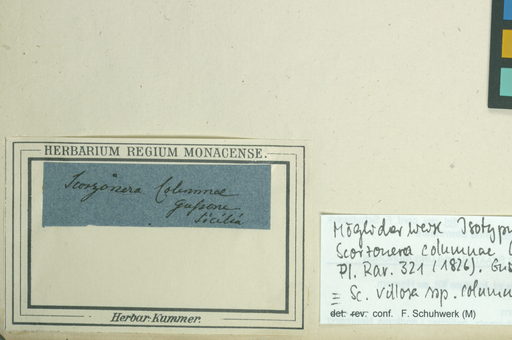 HERBARIUM REGIUM MONACENSE.
Scorzonera Columnae
Gussone
Sicilia
Herbar: Kummer.
Möglicherweise Isotypu
Scorzonera columnae
Pl. Rar. 321 (1826). Gus
= Sc. villosa ssp. columna
det. rev. conf. F. Schuhwerk (M)